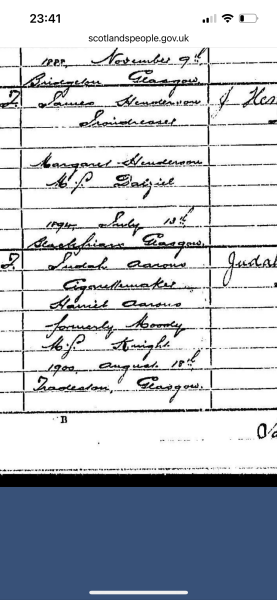 22:35
scotlandspeople.gov.uk
November 9th
Bridgeton Glasgow
James Henderson
J Hen
Margaret Henderson
M.S. Dalziel
July 13th
Blackfriars Glasgow.
Judah Aarons
Judah
Cigarettemaker
Harriet Aarons
formerly Moody
M.S. Knight
1900, August 18th
Tradeston, Glasgow.
B